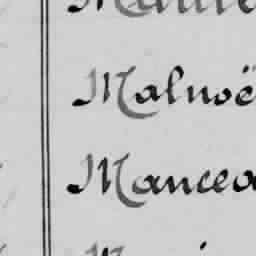 Malnoë
Mancea